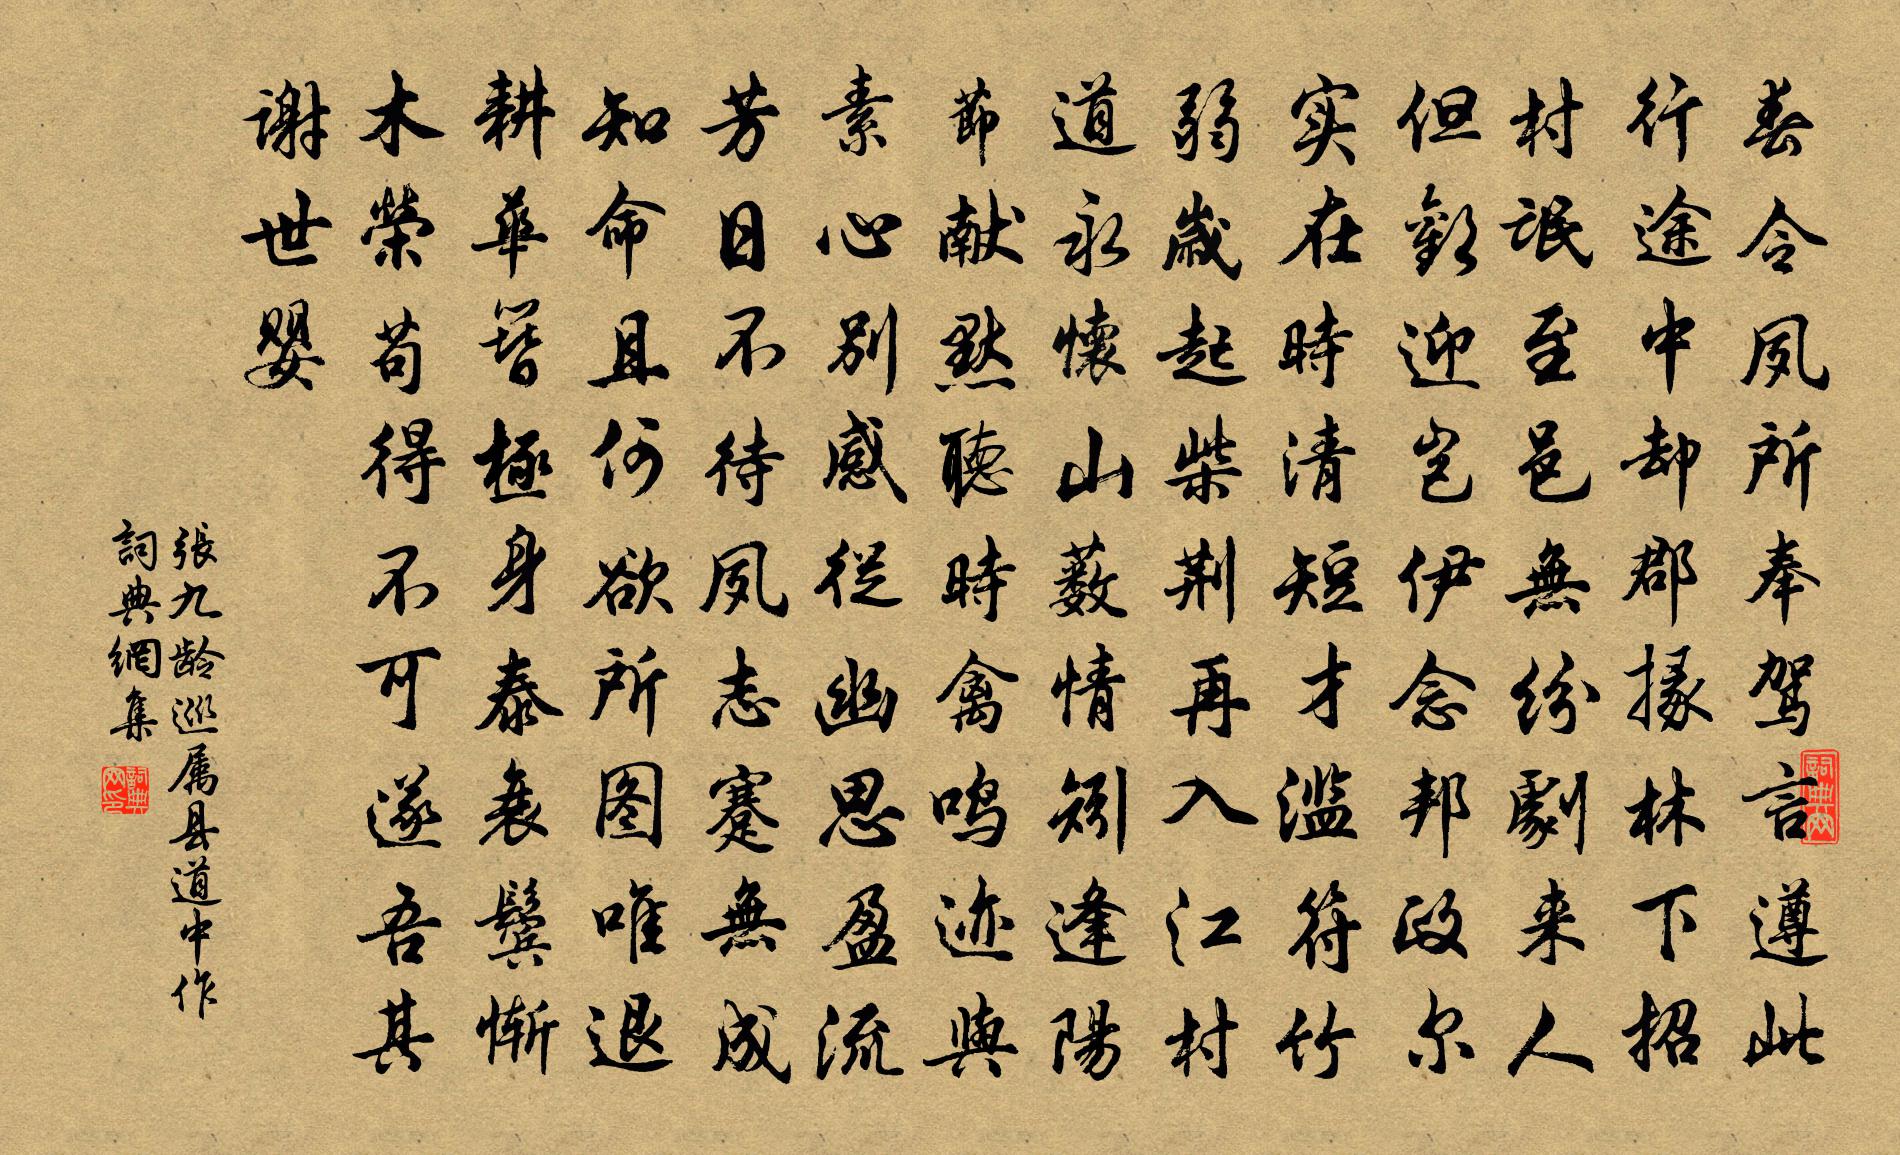 春令夙所奉驾言遵此
行途中却郡掾林下招
村氓至邑無紛劇来人
但歡迎岂伊念邦政尔
实在時清短才滥符竹
弱歲起柴荆再入江村
道永懷山藪情矧逢陽
節献默聽時禽鸣迹與
素心别感從幽思盈流
芳日不待夙志蹇無成
知命且何欲所图唯退
耕華簪極身泰衰鬓惭
木榮苟得不可遂吾其
谢世嬰
張九龄巡属县道中作
詞典網集